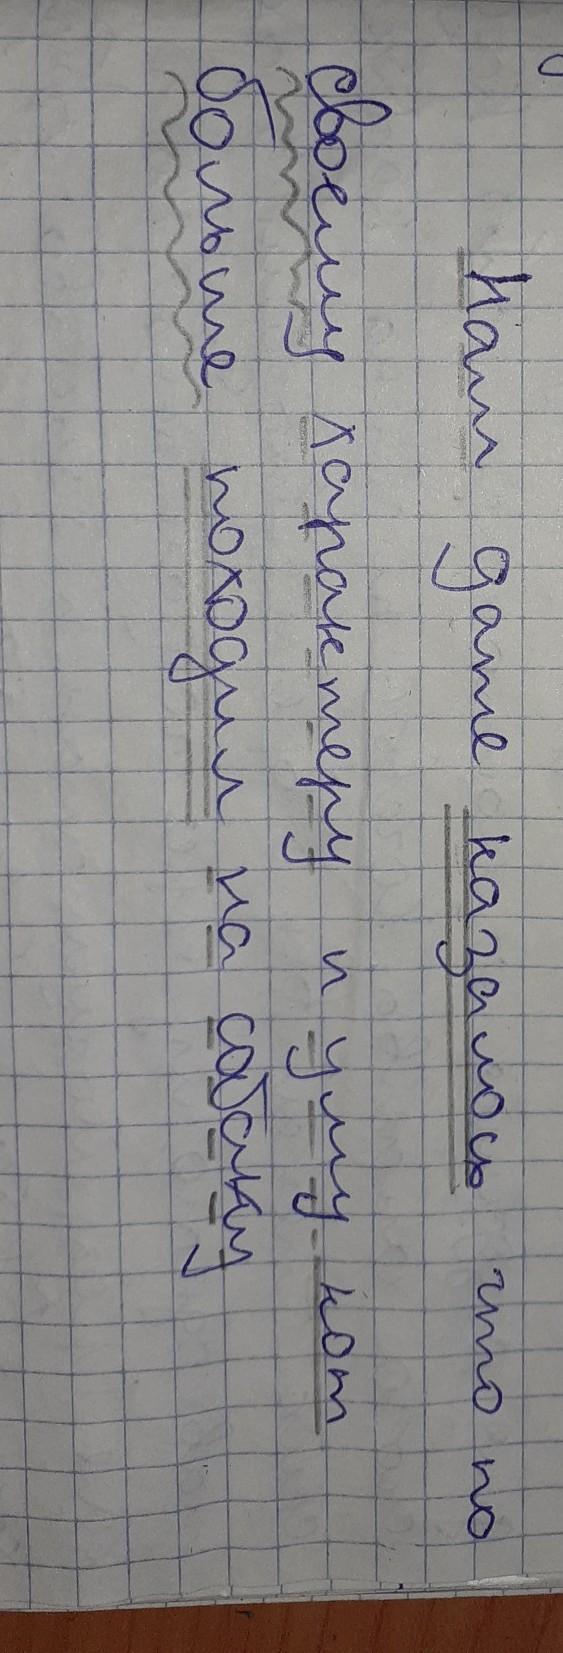 Нам даже казалось что по
своему характеру и уму кот
больше походил на собаку